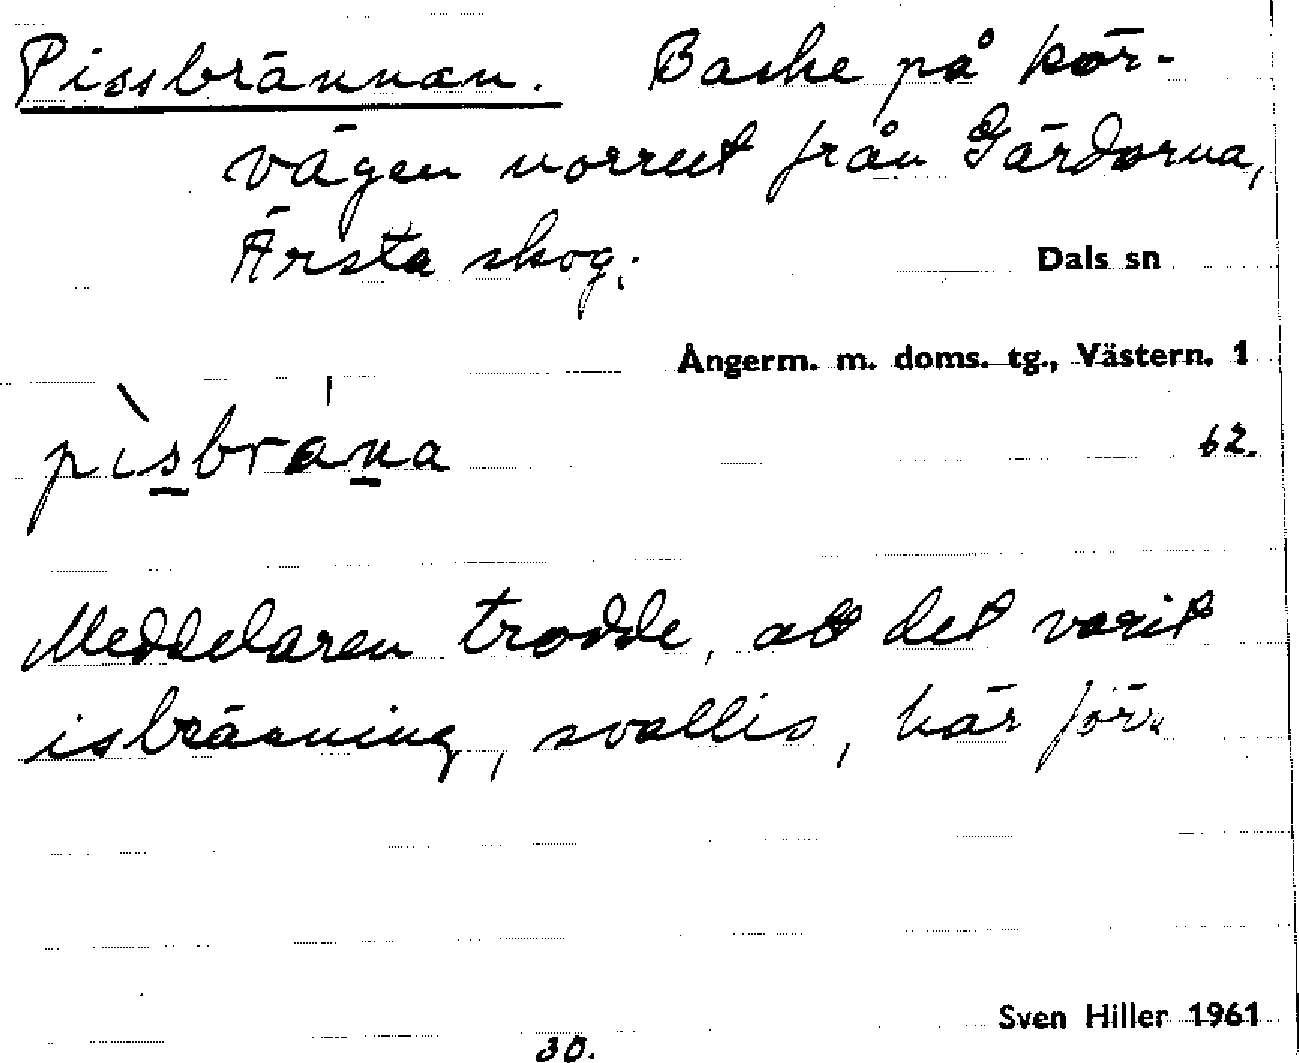 Pissbrännan. Backe på kör-
vägen norrut från Gärdorna,
Ärsta skog.
Dals sn
Ångerm. m. doms. tg., Västern. 1
pìsbrána
62.
Meddelaren trodde, att det varit
isbränning, svallis, här förr
Sven Hiller 1961
30.